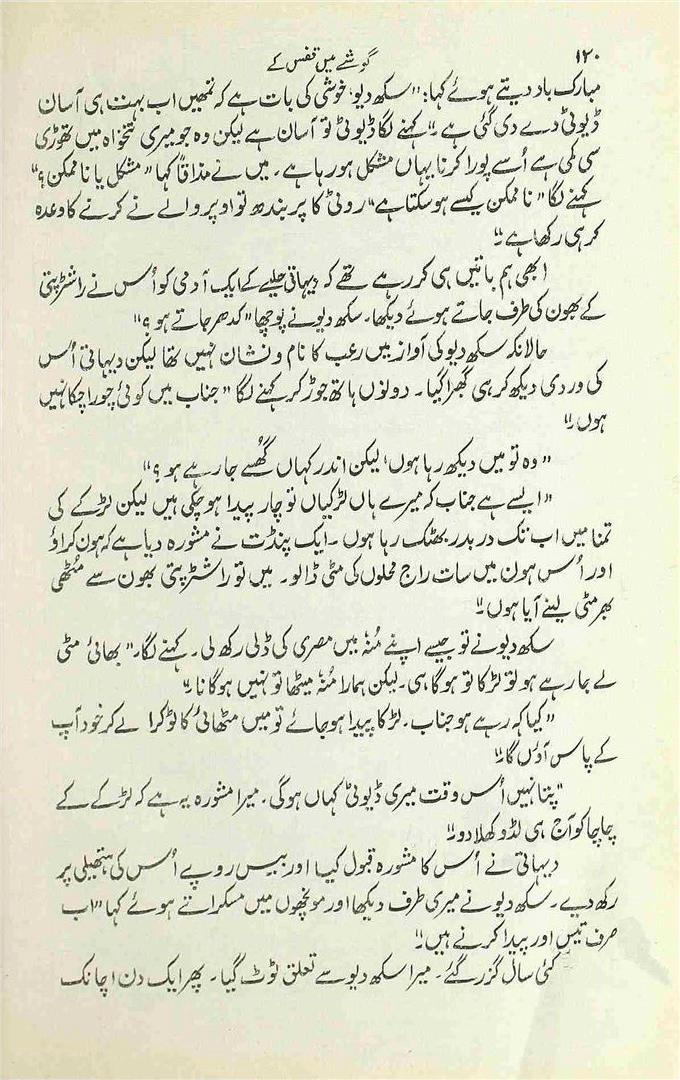 ۱۲۰
گوشے میں قفس کے
مبارک باد دیتے ہوئے کہا: "سکھ دیو، خوشی کی بات ہے کہ تمھیں اب بہت ہی آسان
ڈیوٹی دے دی گئی ہے۔" کہنے لگا ڈیوٹی تو آسان ہے لیکن وہ جو میری تنخواہ میں تھوڑی
سی کمی ہے اُسے پورا کرنا یہاں مشکل ہو رہا ہے۔ میں نے مذاقاً کہا "مشکل یا ناممکن؟"
کہنے لگا "ناممکن کیسے ہو سکتا ہے" روٹی کا پربندھ تو اوپر والے نے کرنے کا وعدہ
کر ہی رکھا ہے۔"
ابھی ہم باتیں ہی کر رہے تھے کہ دیہاتی حلیے کے ایک آدمی کو اُس نے راشٹرپتی
کے بھون کی طرف جاتے ہوئے دیکھا۔ سکھ دیو نے پوچھا "کدھر جاتے ہو؟"
حالانکہ سکھ دیو کی آواز میں رعب کا نام و نشان نہیں تھا لیکن دیہاتی اُس
کی وردی دیکھ کر ہی گھبرا گیا۔ دونوں ہاتھ جوڑ کر کہنے لگا "جناب میں کوئی چور اچکا نہیں
ہوں۔"
"وہ تو میں دیکھ رہا ہوں، لیکن اندر کہاں گھُسے جا رہے ہو؟"
"ایسے ہے جناب کہ میرے ہاں لڑکیاں تو چار پیدا ہو چکی ہیں لیکن لڑکے کی
تمنا میں اب تک در بدر بھٹک رہا ہوں۔ ایک پنڈت نے مشورہ دیا ہے کہ ہون کراؤ
اور اُس ہون میں سات راج محلوں کی مٹی ڈالو۔ میں تو راشٹرپتی بھون سے مُٹھی
بھر مٹی لینے آیا ہوں۔"
سکھ دیو نے تو جیسے اپنے مُنہ میں مصری کی ڈلی رکھ لی۔ کہنے لگا، "بھائی مٹی
لے جا رہے ہو تو لڑکا تو ہوگا ہی۔ لیکن ہمارا مُنہ میٹھا تو نہیں ہوگا نا۔"
"کیا کہہ رہے ہو جناب۔ لڑکا پیدا ہو جائے تو میں مٹھائی کا ٹوکرا لے کر خود آپ
کے پاس آؤں گا۔"
"پتا نہیں اُس وقت میری ڈیوٹی کہاں ہوگی۔ میرا مشورہ یہ ہے کہ لڑکے کے
چاچا کو آج ہی لڈو کھلا دو۔"
دیہاتی نے اُس کا مشورہ قبول کیا اور بیس روپے اُس کی ہتھیلی پر
رکھ دیے۔ سکھ دیو نے میری طرف دیکھا اور مونچھوں میں مسکراتے ہوئے کہا "اب
صرف تیس اور پیدا کرنے ہیں۔"
کئی سال گزر گئے۔ میرا سکھ دیو سے تعلق ٹوٹ گیا۔ پھر ایک دن اچانک